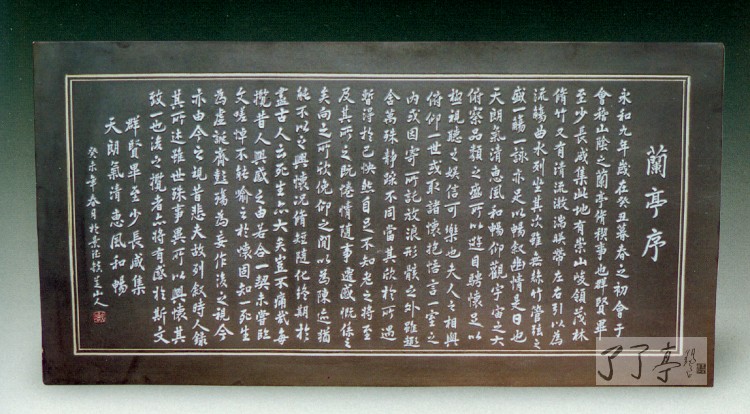 蘭亭序
永和九年歲在癸丑暮春之初會于
會稽山陰之蘭亭脩稧事也群賢畢
至少長咸集此地有崇山峻領茂林
脩竹又有清流激湍映帶左右引以為
流觴曲水列坐其次雖無絲竹管弦之
盛一觴一詠亦足以暢敘幽情是日也
天朗氣清惠風和暢仰觀宇宙之大
俯察品類之盛所以遊目騁懷足以
極視聽之娛信可樂也夫人之相與
俯仰一世或取諸懷抱悟言一室之
內或因寄所託放浪形骸之外雖趣
舍萬殊靜躁不同當其欣於所遇
暫得於己快然自足不知老之將至
及其所之既惓情隨事遷感慨係之
矣向之所欣俛仰之間以為陳迹猶
能不以之興懷況脩短隨化終期於
盡古人云死生亦大矣豈不痛哉每
攬昔人興感之由若合一契未嘗臨
文嗟悼不能喻之於懷固知一死生
為虛誕齊彭殤為妄作後之視今
亦由今之視昔悲夫故列敘時人錄
其所述雖世殊事異所以興懷其
致一也後之攬者亦將有感於斯文
群賢畢至少長咸集
天朗氣清惠風和暢
癸未年春月於景德鎮山人
了了亭